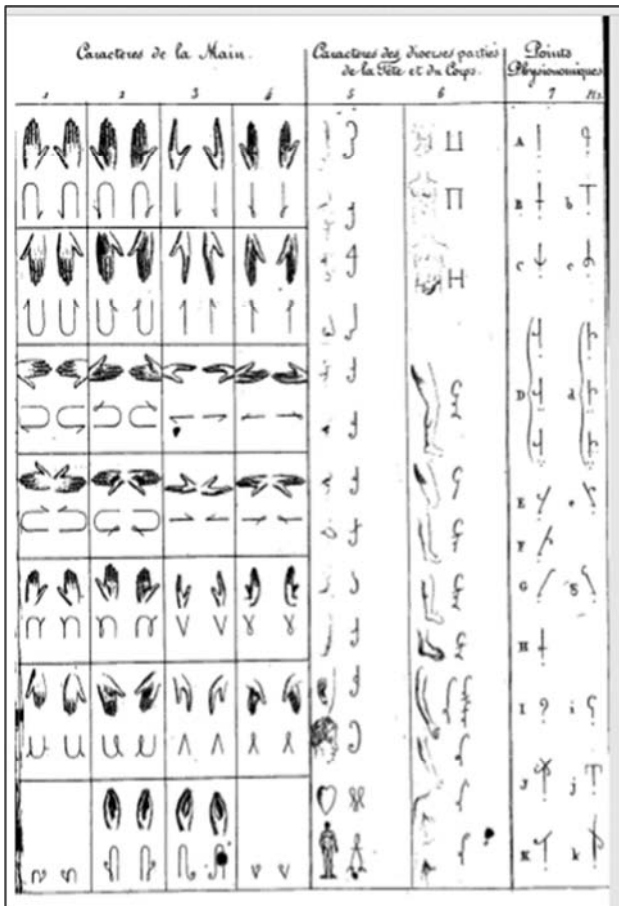 Caractères de la Main.
Caractères des diverses parties
de la Tête et du Corps.
Points
Physionomiques
1 2 3 4 5 6 7 bis.
A
B b
C c
D d
E e
F
G g
H
I i
J j
K k